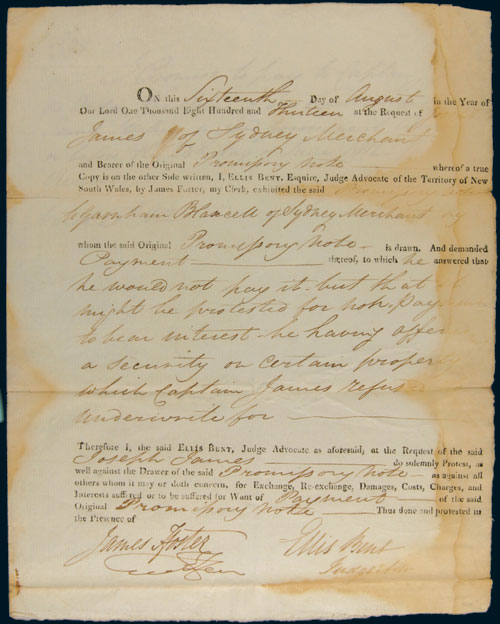 ON this Sixteenth Day of August in the Year of
Our Lord One Thousand Eight Hundred and Thirteen at the Request of
James of Sydney Merchant
and Bearer of the Original Promissory Note whereof a true
Copy is on the other Side written, I, ELLIS BENT, Esquire, Judge Advocate of the Territory of New
South Wales, by James Foster, my Clerk, exhibited the said
Garnham Blaxcell of Sydney Merchant by
whom the said Original Promissory Note is drawn. And demanded
Payment thereof, to which he answered that
he would not pay it but that
might be protested for non
to bear interest he having
a security on certain property
which Captain James
underwrite for
Therefore I, the said ELLIS BENT, Judge Advocate as aforesaid, at the Request of the said
Joseph James do solemnly Protest, as
well against the Drawer of the said Promissory Note as against all
others whom it may or doth concern, for Exchange, Re-exchange, Damages, Costs, Charges, and
Interests suffered or to be suffered for Want of Payment of the said
Original Promissory Note Thus done and protested in
the Presence of
James Foster Ellis Bent